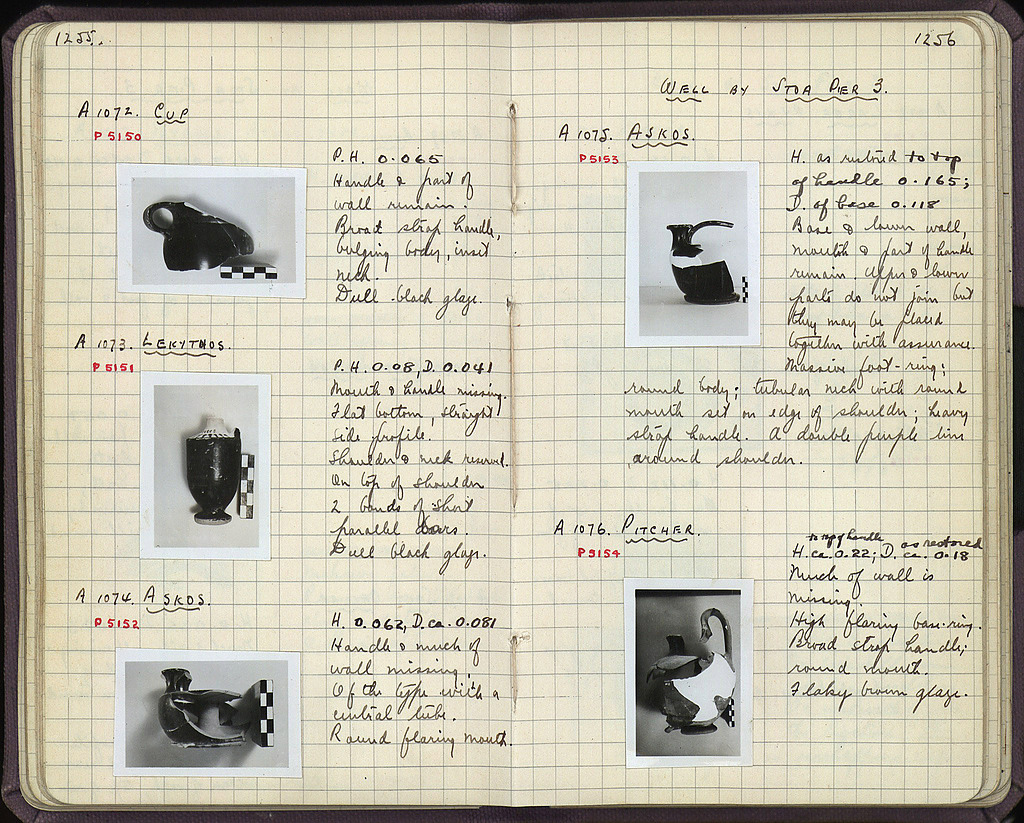 1255.
A 1072. CUP
P 5150
P.H. 0.065
Handle & part of
wall remain.
Broad strap handle,
bulging body, inset
neck.
Dull black glaze.
A 1073. LEKYTHOS.
P 5151
P.H. 0.08, D. 0.041
Mouth & handle missing.
Flat bottom, straight
side profile.
Shoulder & neck reserved.
On top of shoulder
2 bands of short
parallel bars.
Dull black glaze.
A 1074. ASKOS.
P 5152
H. 0.062, D. ca. 0.081
Handle & much of
wall missing.
Of the type with a
central tube.
Round flaring mouth.
1256
WELL BY STOA PIER 3.
A 1075. ASKOS.
P 5153
H. as restored to top
of handle 0.165;
D. of base 0.118
Base & lower wall,
mouth & part of handle
remain. Upper & lower
parts do not join but
they may be placed
together with assurance.
Massive foot-ring;
round body; tubular neck with round
mouth set on edge of shoulder; heavy
strap handle. A double purple line
around shoulder.
A 1076. PITCHER.
P 5154
to top of handle as restored
H. ca. 0.22; D. ca. 0.18
Much of wall is
missing.
High flaring base-ring.
Broad strap handle;
round mouth.
Flaky brown glaze.